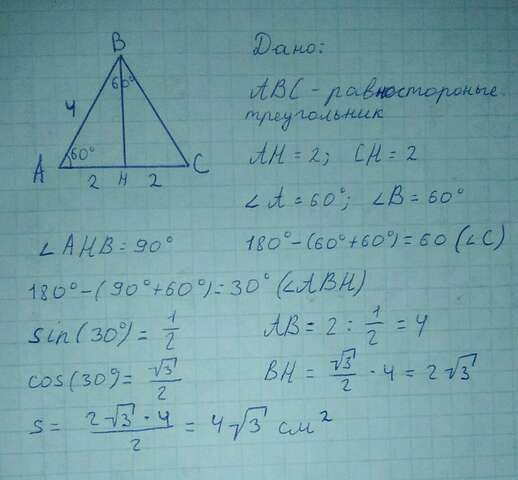 B
Дано:
60°
ABC - равностороные
треугольник
4
60°
A
2
H
2
C
AH = 2; CH = 2
∠A = 60°; ∠B = 60°
∠AHB = 90°
180° - (60° + 60°) = 60 (∠C)
180° - (90° + 60°) = 30° (∠ABH)
sin(30°) = 1/2
AB = 2 : 1/2 = 4
cos(30°) = √3/2
BH = √3/2 · 4 = 2√3
S = 2√3 · 4 / 2 = 4√3 см²